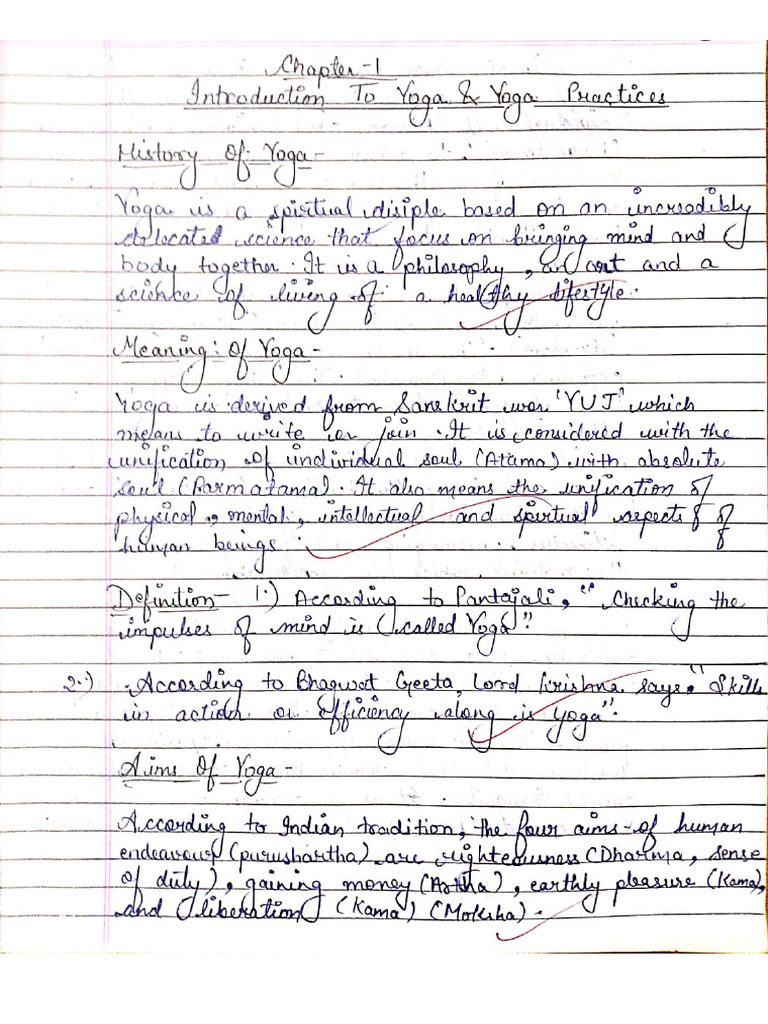 Chapter-1
Introduction To Yoga & Yoga Practices
History Of Yoga-
Yoga is a spirtual disiple based on an incredibly
delocated science that focus on bringing mind and
body together. It is a philosophy, an art and a
science of living of a healthy lifestyle.
Meaning: Of Yoga-
Yoga is derived from Sanskrit wor "YUJ" which
means to write or join. It is considered with the
unification of individual soul (Atama) with absolute
soul (Parmatama). It also means the unification of
physical, mental, intellectual and spirtual aspects of
human beings.
Definition- 1.) According to Pantajali, "Checking the
impulses of mind is called Yoga".
2.) According to Bhagwat Geeta, Lord Krishna says, "Skills
in action or efficiency along is yoga".
Aims Of Yoga-
According to Indian tradition, the four aims of human
endeavour (purushartha) are righteousness (Dharma, sense
of duty), gaining money (Artha), earthly pleasure (Kama),
and liberation (Kama) (Moksha).